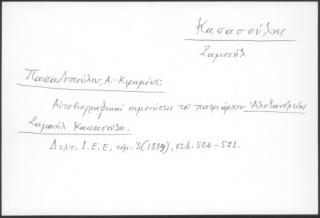 Καπασούλης
Σαμουήλ
Παπαδοπούλου, Α.-Κεραμέως:
Αὐτοβιογραφικαὶ σημειώσεις τοῦ πατριάρχου Ἀλεξανδρείας
Σαμουὴλ Καπασούλη.
Δελτ. Ι.Ε.Ε, τόμ. 3 (1889), σελ. 504-521.